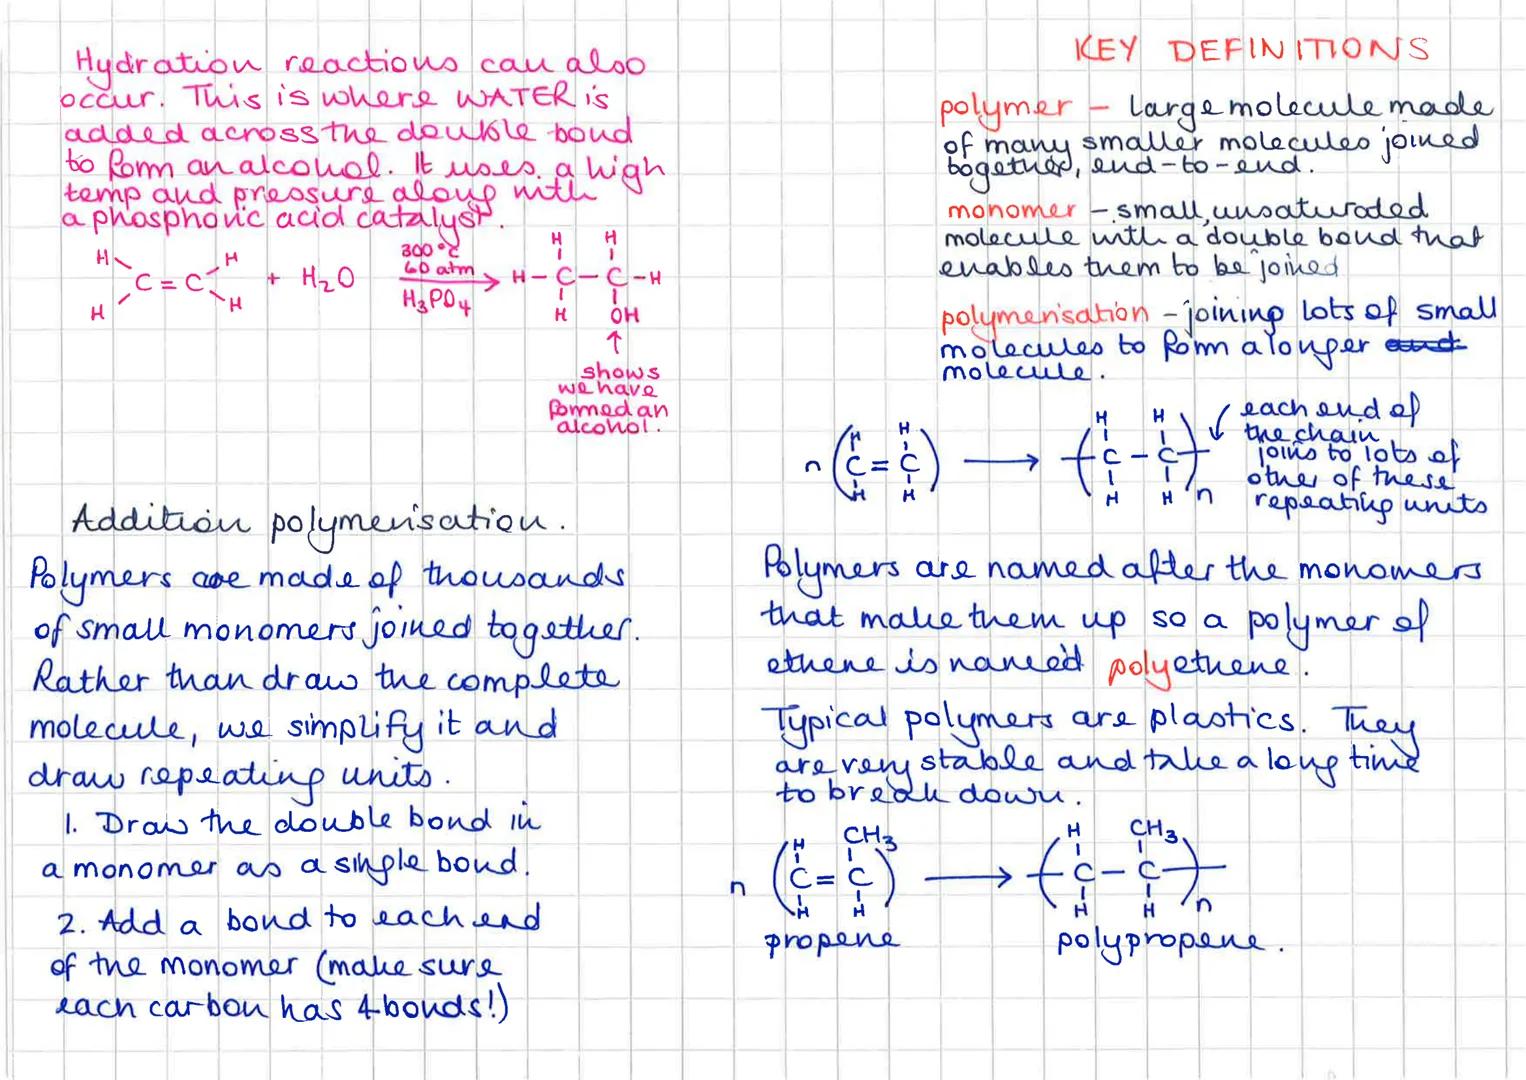 Hydration reactions can also
occur. This is where WATER is
added across the double bond
to form an alcohol. It uses a high
temp and pressure along with
a phosphoric acid catalyst.
H H
C = C + H₂O
H H
300°C
60 atm
H₃PO₄
H H
H – C – C – H
H OH
↑
shows
we have
formed an
alcohol.
Addition polymerisation.
Polymers are made of thousands
of small monomers joined together.
Rather than draw the complete
molecule, we simplify it and
draw repeating units.
1. Draw the double bond in
a monomer as a single bond.
2. Add a bond to each end
of the monomer (make sure
each carbon has 4 bonds!)
KEY DEFINITIONS
polymer – large molecule made
of many smaller molecules joined
together, end-to-end.
monomer – small, unsaturated
molecule with a double bond that
enables them to be joined
polymerisation – joining lots of small
molecules to form a longer
molecule.
H H
n ( C = C )
H H
→
H H
( C – C )
H H n
each end of
the chain
joins to lots of
other of these
repeating units
Polymers are named after the monomers
that make them up so a polymer of
ethene is named polyethene.
Typical polymers are plastics. They
are very stable and take a long time
to break down.
H CH₃
n ( C = C )
H H
propene
→
H CH₃
( C – C )
H H n
polypropene.